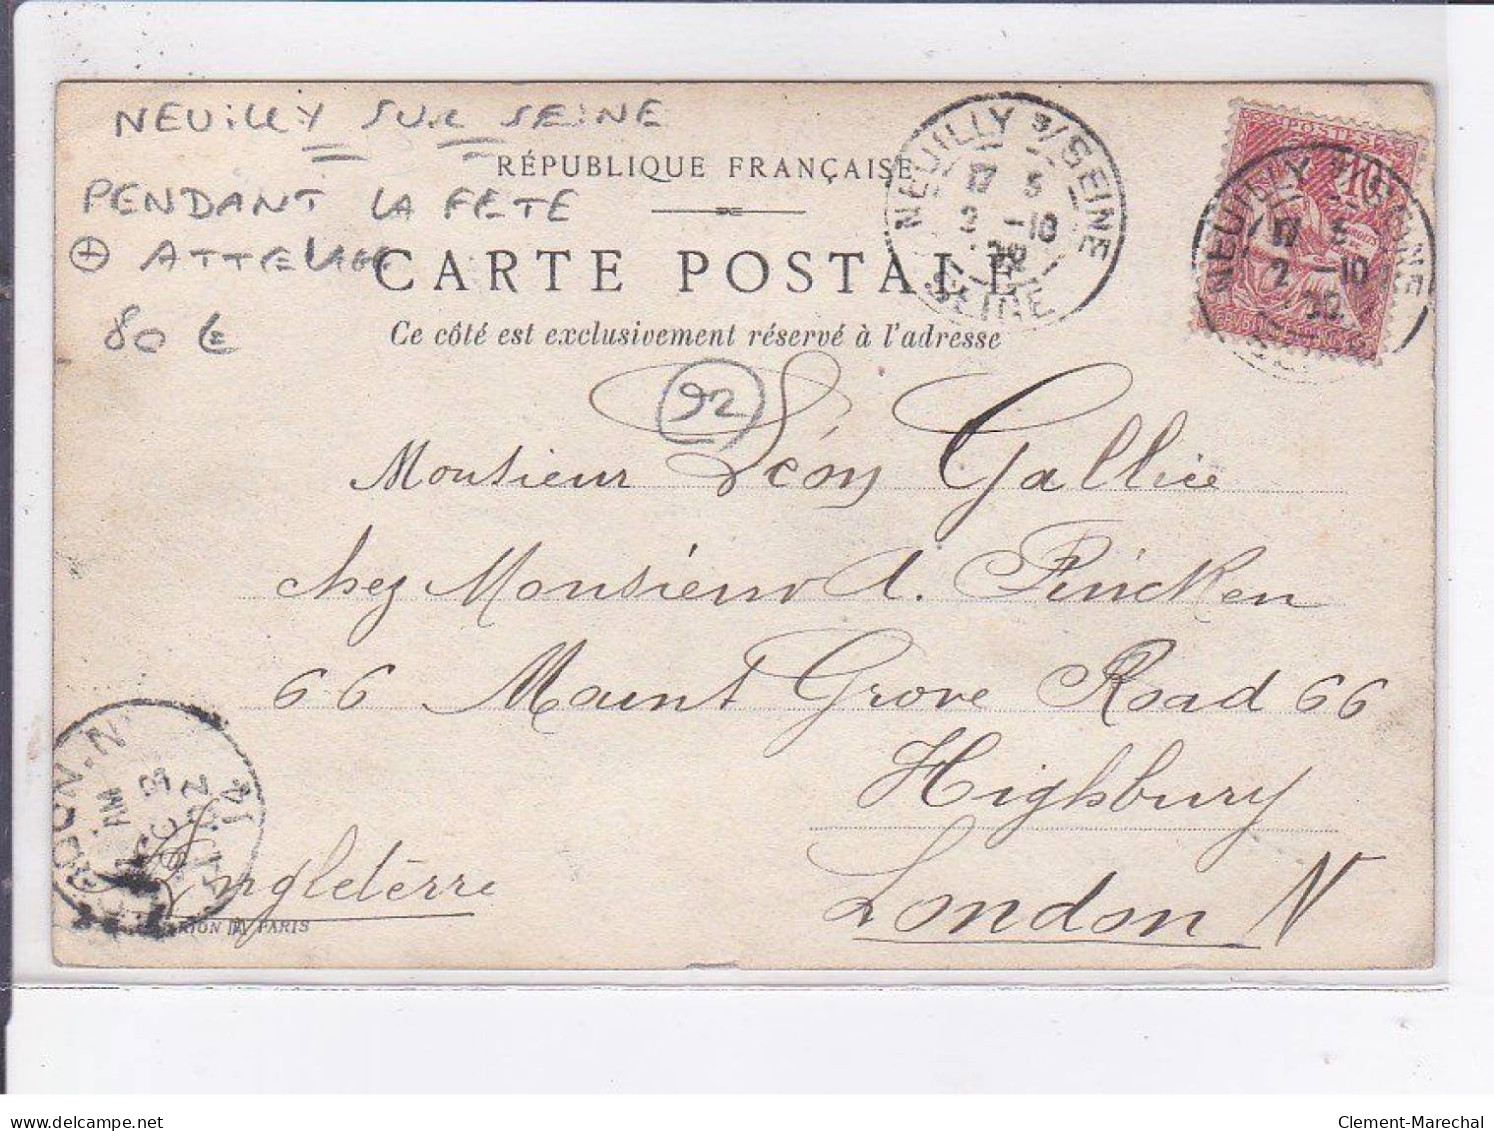 NEUILLY SUR SEINE
RÉPUBLIQUE FRANÇAISE
PENDANT LA FÊTE
⊕ ATTELAGE
CARTE POSTALE
80 €
Ce côté est exclusivement réservé à l'adresse
NEUILLY S/SEINE
17 5
2 -10
02
SEINE
POSTES
10
NEUILLY S/SEINE
17 5
2 -10
02
92
Monsieur Léon Gallice
chez Monsieur A. Fincken
66 Mount Grove Road 66
Highbury
London N
Angleterre
LONDON.N
PARIS
delcampe.net
Clement-Marechal